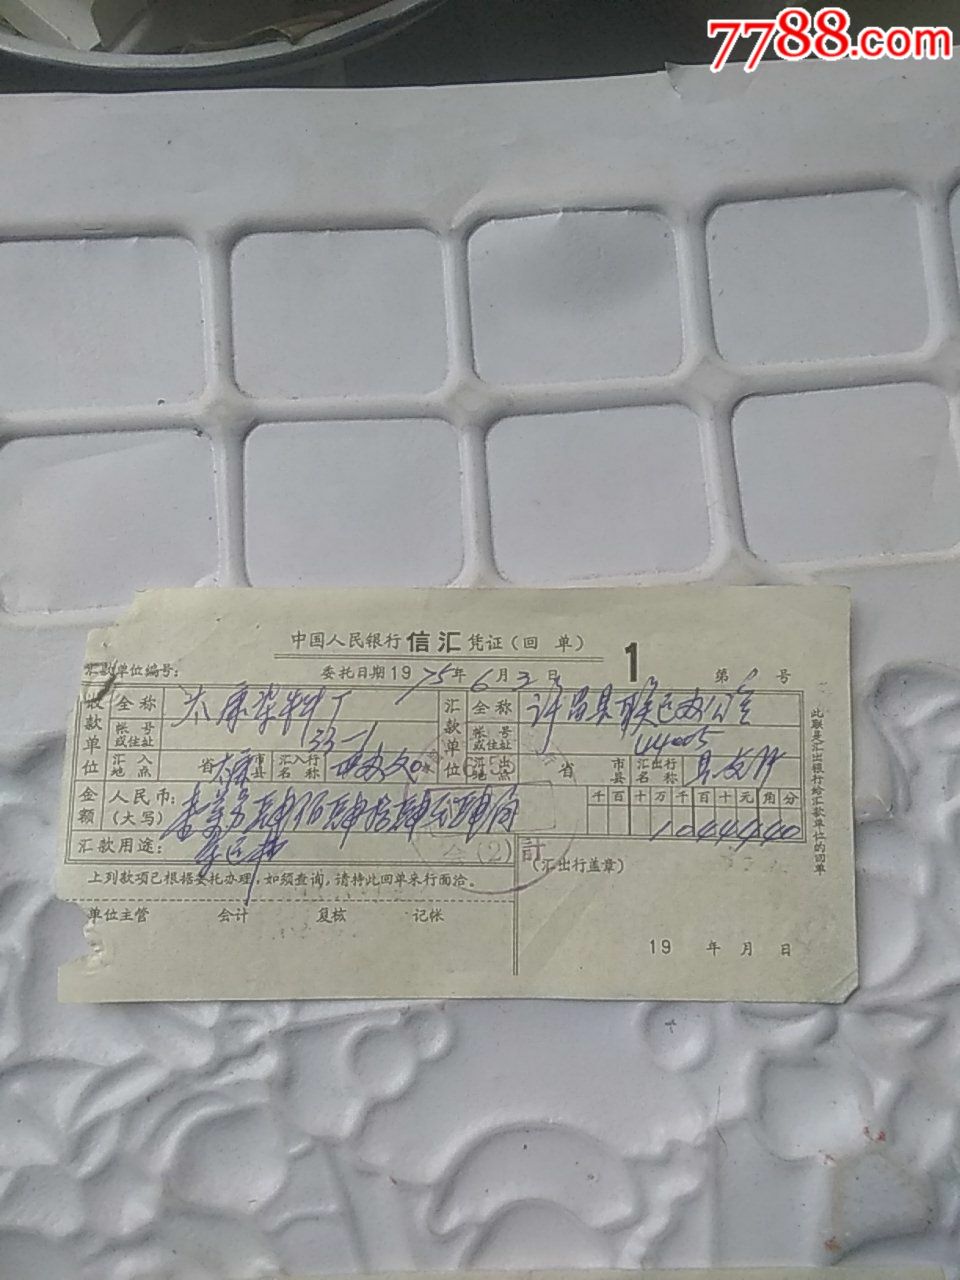 7788.com
中国人民银行 信汇 凭证(回 单) 1
汇款单位编号: 委托日期1975年6月3日 第 号
收款单位 全称 太康染料厂 汇款单位 全称 许昌县联运办公室
帐号或住址 33-1 帐号或住址 44005
汇入地点 省太康市县 汇入行名称 汇出地点 省 市县 汇出行名称
金额 人民币:(大写) 千百十万千百十元角分
1044440
汇款用途:
上列款项已根据委托办理,如须查询,请持此回单来行面洽。
(汇出行盖章)
会(2) 計
单位主管 会计 复核 记帐
19 年 月 日
此联是汇出银行给汇款单位的回单